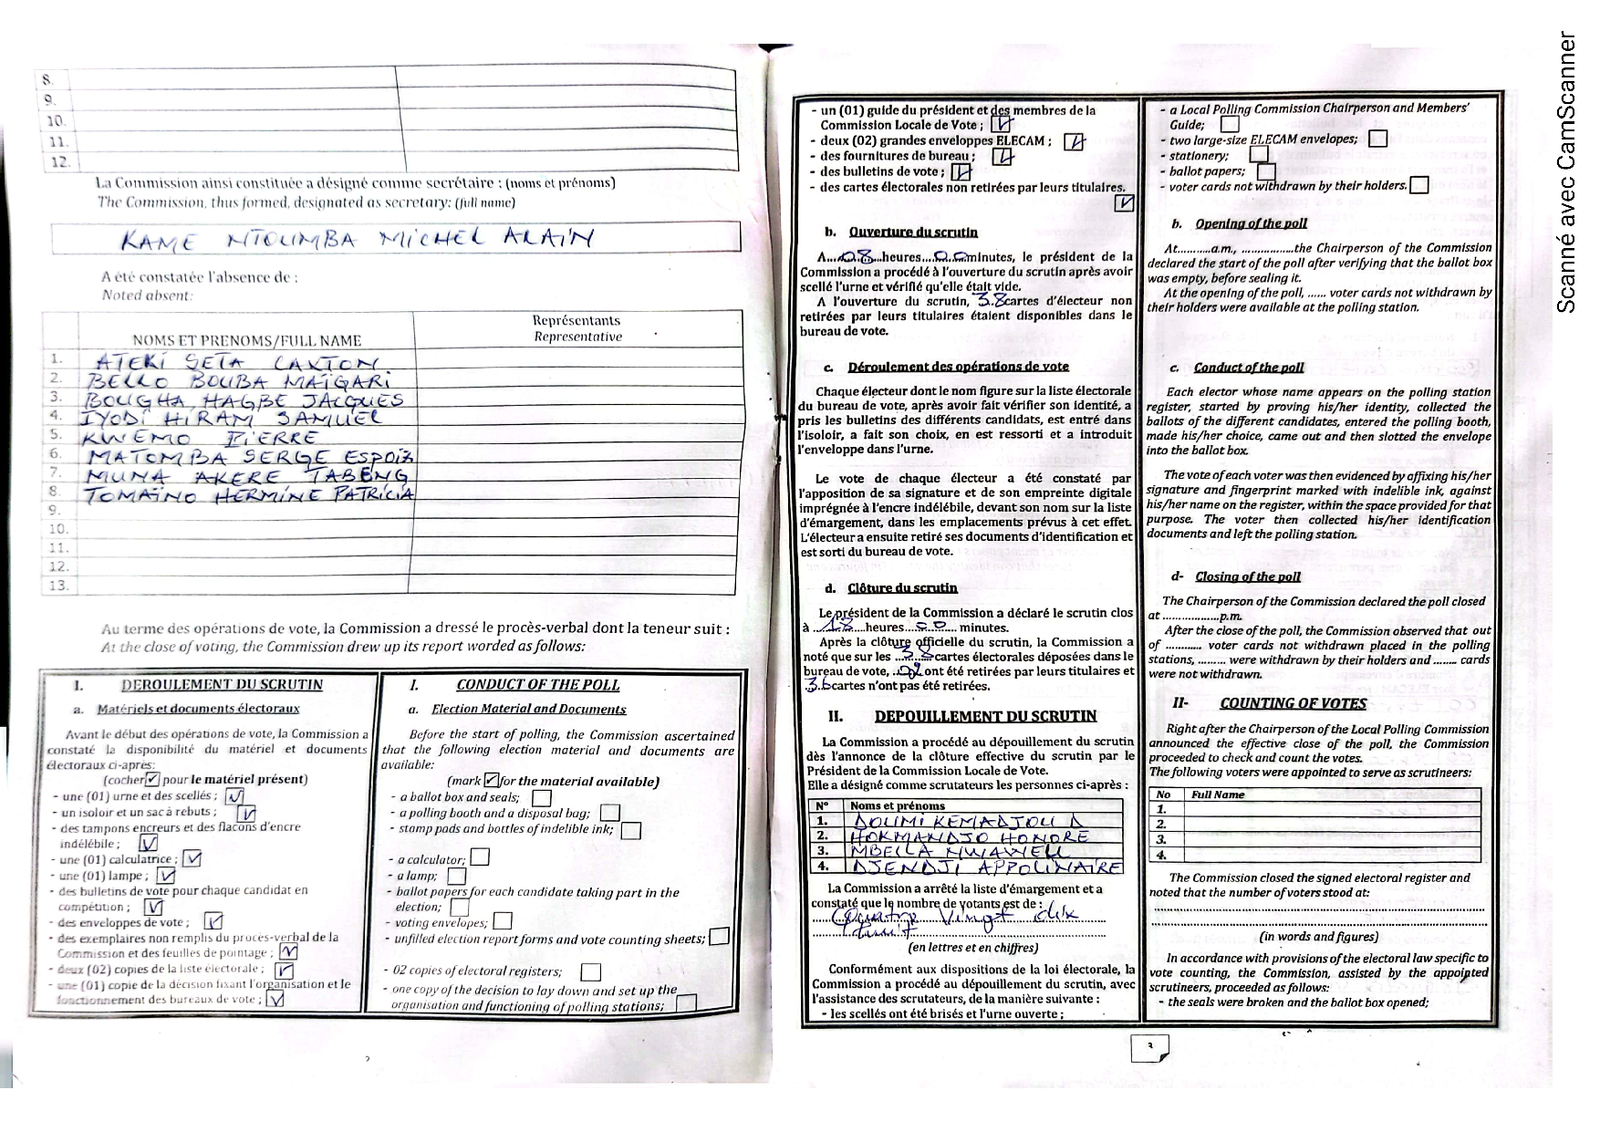 8.
9.
10.
11.
12.
La Commission ainsi constituée a désigné comme secrétaire : (noms et prénoms)
The Commission, thus formed, designated as secretary: (full name)
KAME NTOUMBA MICHEL ALAIN
A été constatée l'absence de :
Noted absent:
NOMS ET PRENOMS/FULL NAME
Représentants
Representative
1. ATEKI SETA CAXTON
2. BELLO BOUBA MAÏGARI
3. BOUGHA HAGBE JACQUES
4. IYODI HIRAM SAMUEL
5. KWEMO PIERRE
6. MATOMBA SERGE ESPOIR
7. MUNA AKERE TABENG
8. TOMAÏNO HERMINE PATRICIA
9.
10.
11.
12.
13.
Au terme des opérations de vote, la Commission a dressé le procès-verbal dont la teneur suit :
At the close of voting, the Commission drew up its report worded as follows:
I. DEROULEMENT DU SCRUTIN
a. Matériels et documents électoraux
Avant le début des opérations de vote, la Commission a
constaté la disponibilité du matériel et documents
électoraux ci-après:
(cocher ✓ pour le matériel présent)
- une (01) urne et des scellés ;
- un isoloir et un sac à rebuts ;
- des tampons encreurs et des flacons d'encre
indélébile ;
- une (01) calculatrice ;
- une (01) lampe ;
- des bulletins de vote pour chaque candidat en
compétition ;
- des enveloppes de vote ;
- des exemplaires non remplis du procès-verbal de la
Commission et des feuilles de pointage ;
- deux (02) copies de la liste électorale ;
- une (01) copie de la décision fixant l'organisation et le
fonctionnement des bureaux de vote ;
I. CONDUCT OF THE POLL
a. Election Material and Documents
Before the start of polling, the Commission ascertained
that the following election material and documents are
available:
(mark ✓ for the material available)
- a ballot box and seals;
- a polling booth and a disposal bag;
- stamp pads and bottles of indelible ink;
- a calculator;
- a lamp;
- ballot papers for each candidate taking part in the
election;
- voting envelopes;
- unfilled election report forms and vote counting sheets;
- 02 copies of electoral registers;
- one copy of the decision to lay down and set up the
organisation and functioning of polling stations;
- un (01) guide du président et des membres de la
Commission Locale de Vote ;
- deux (02) grandes enveloppes ELECAM ;
- des fournitures de bureau ;
- des bulletins de vote ;
- des cartes électorales non retirées par leurs titulaires.
b. Ouverture du scrutin
A...08...heures...00minutes, le président de la
Commission a procédé à l'ouverture du scrutin après avoir
scellé l'urne et vérifié qu'elle était vide.
A l'ouverture du scrutin, 38 cartes d'électeur non
retirées par leurs titulaires étaient disponibles dans le
bureau de vote.
c. Déroulement des opérations de vote
Chaque électeur dont le nom figure sur la liste électorale
du bureau de vote, après avoir fait vérifier son identité, a
pris les bulletins des différents candidats, est entré dans
l'isoloir, a fait son choix, en est ressorti et a introduit
l'enveloppe dans l'urne.
Le vote de chaque électeur a été constaté par
l'apposition de sa signature et de son empreinte digitale
imprégnée à l'encre indélébile, devant son nom sur la liste
d'émargement, dans les emplacements prévus à cet effet.
L'électeur a ensuite retiré ses documents d'identification et
est sorti du bureau de vote.
d. Clôture du scrutin
Le président de la Commission a déclaré le scrutin clos
à ...18...heures...00... minutes.
Après la clôture officielle du scrutin, la Commission a
noté que sur les ...38...cartes électorales déposées dans le
bureau de vote, ...02 ont été retirées par leurs titulaires et
36 cartes n'ont pas été retirées.
II. DEPOUILLEMENT DU SCRUTIN
La Commission a procédé au dépouillement du scrutin
dès l'annonce de la clôture effective du scrutin par le
Président de la Commission Locale de Vote.
Elle a désigné comme scrutateurs les personnes ci-après :
N° Noms et prénoms
1. DOUMI KEMADJOU D
2. HOKMANDJO HONORE
3. MBELLA
4. DJENDJI APPOLINAIRE
La Commission a arrêté la liste d'émargement et a
constaté que le nombre de votants est de :
Quatre Vingt dix
huit
(en lettres et en chiffres)
Conformément aux dispositions de la loi électorale, la
Commission a procédé au dépouillement du scrutin, avec
l'assistance des scrutateurs, de la manière suivante :
- les scellés ont été brisés et l'urne ouverte ;
- a Local Polling Commission Chairperson and Members'
Guide;
- two large-size ELECAM envelopes;
- stationery;
- ballot papers;
- voter cards not withdrawn by their holders.
b. Opening of the poll
At..........a.m, ................the Chairperson of the Commission
declared the start of the poll after verifying that the ballot box
was empty, before sealing it.
At the opening of the poll, ...... voter cards not withdrawn by
their holders were available at the polling station.
c. Conduct of the poll
Each elector whose name appears on the polling station
register, started by proving his/her identity, collected the
ballots of the different candidates, entered the polling booth,
made his/her choice, came out and then slotted the envelope
into the ballot box.
The vote of each voter was then evidenced by affixing his/her
signature and fingerprint marked with indelible ink, against
his/her name on the register, within the space provided for that
purpose. The voter then collected his/her identification
documents and left the polling station.
d- Closing of the poll
The Chairperson of the Commission declared the poll closed
at ..................p.m.
After the close of the poll, the Commission observed that out
of ........... voter cards not withdrawn placed in the polling
stations, ......... were withdrawn by their holders and ........ cards
were not withdrawn.
II- COUNTING OF VOTES
Right after the Chairperson of the Local Polling Commission
announced the effective close of the poll, the Commission
proceeded to check and count the votes.
The following voters were appointed to serve as scrutineers:
No Full Name
1.
2.
3.
4.
The Commission closed the signed electoral register and
noted that the number of voters stood at:
(in words and figures)
In accordance with provisions of the electoral law specific to
vote counting, the Commission, assisted by the appointed
scrutineers, proceeded as follows:
- the seals were broken and the ballot box opened;
3
Scanné avec CamScanner